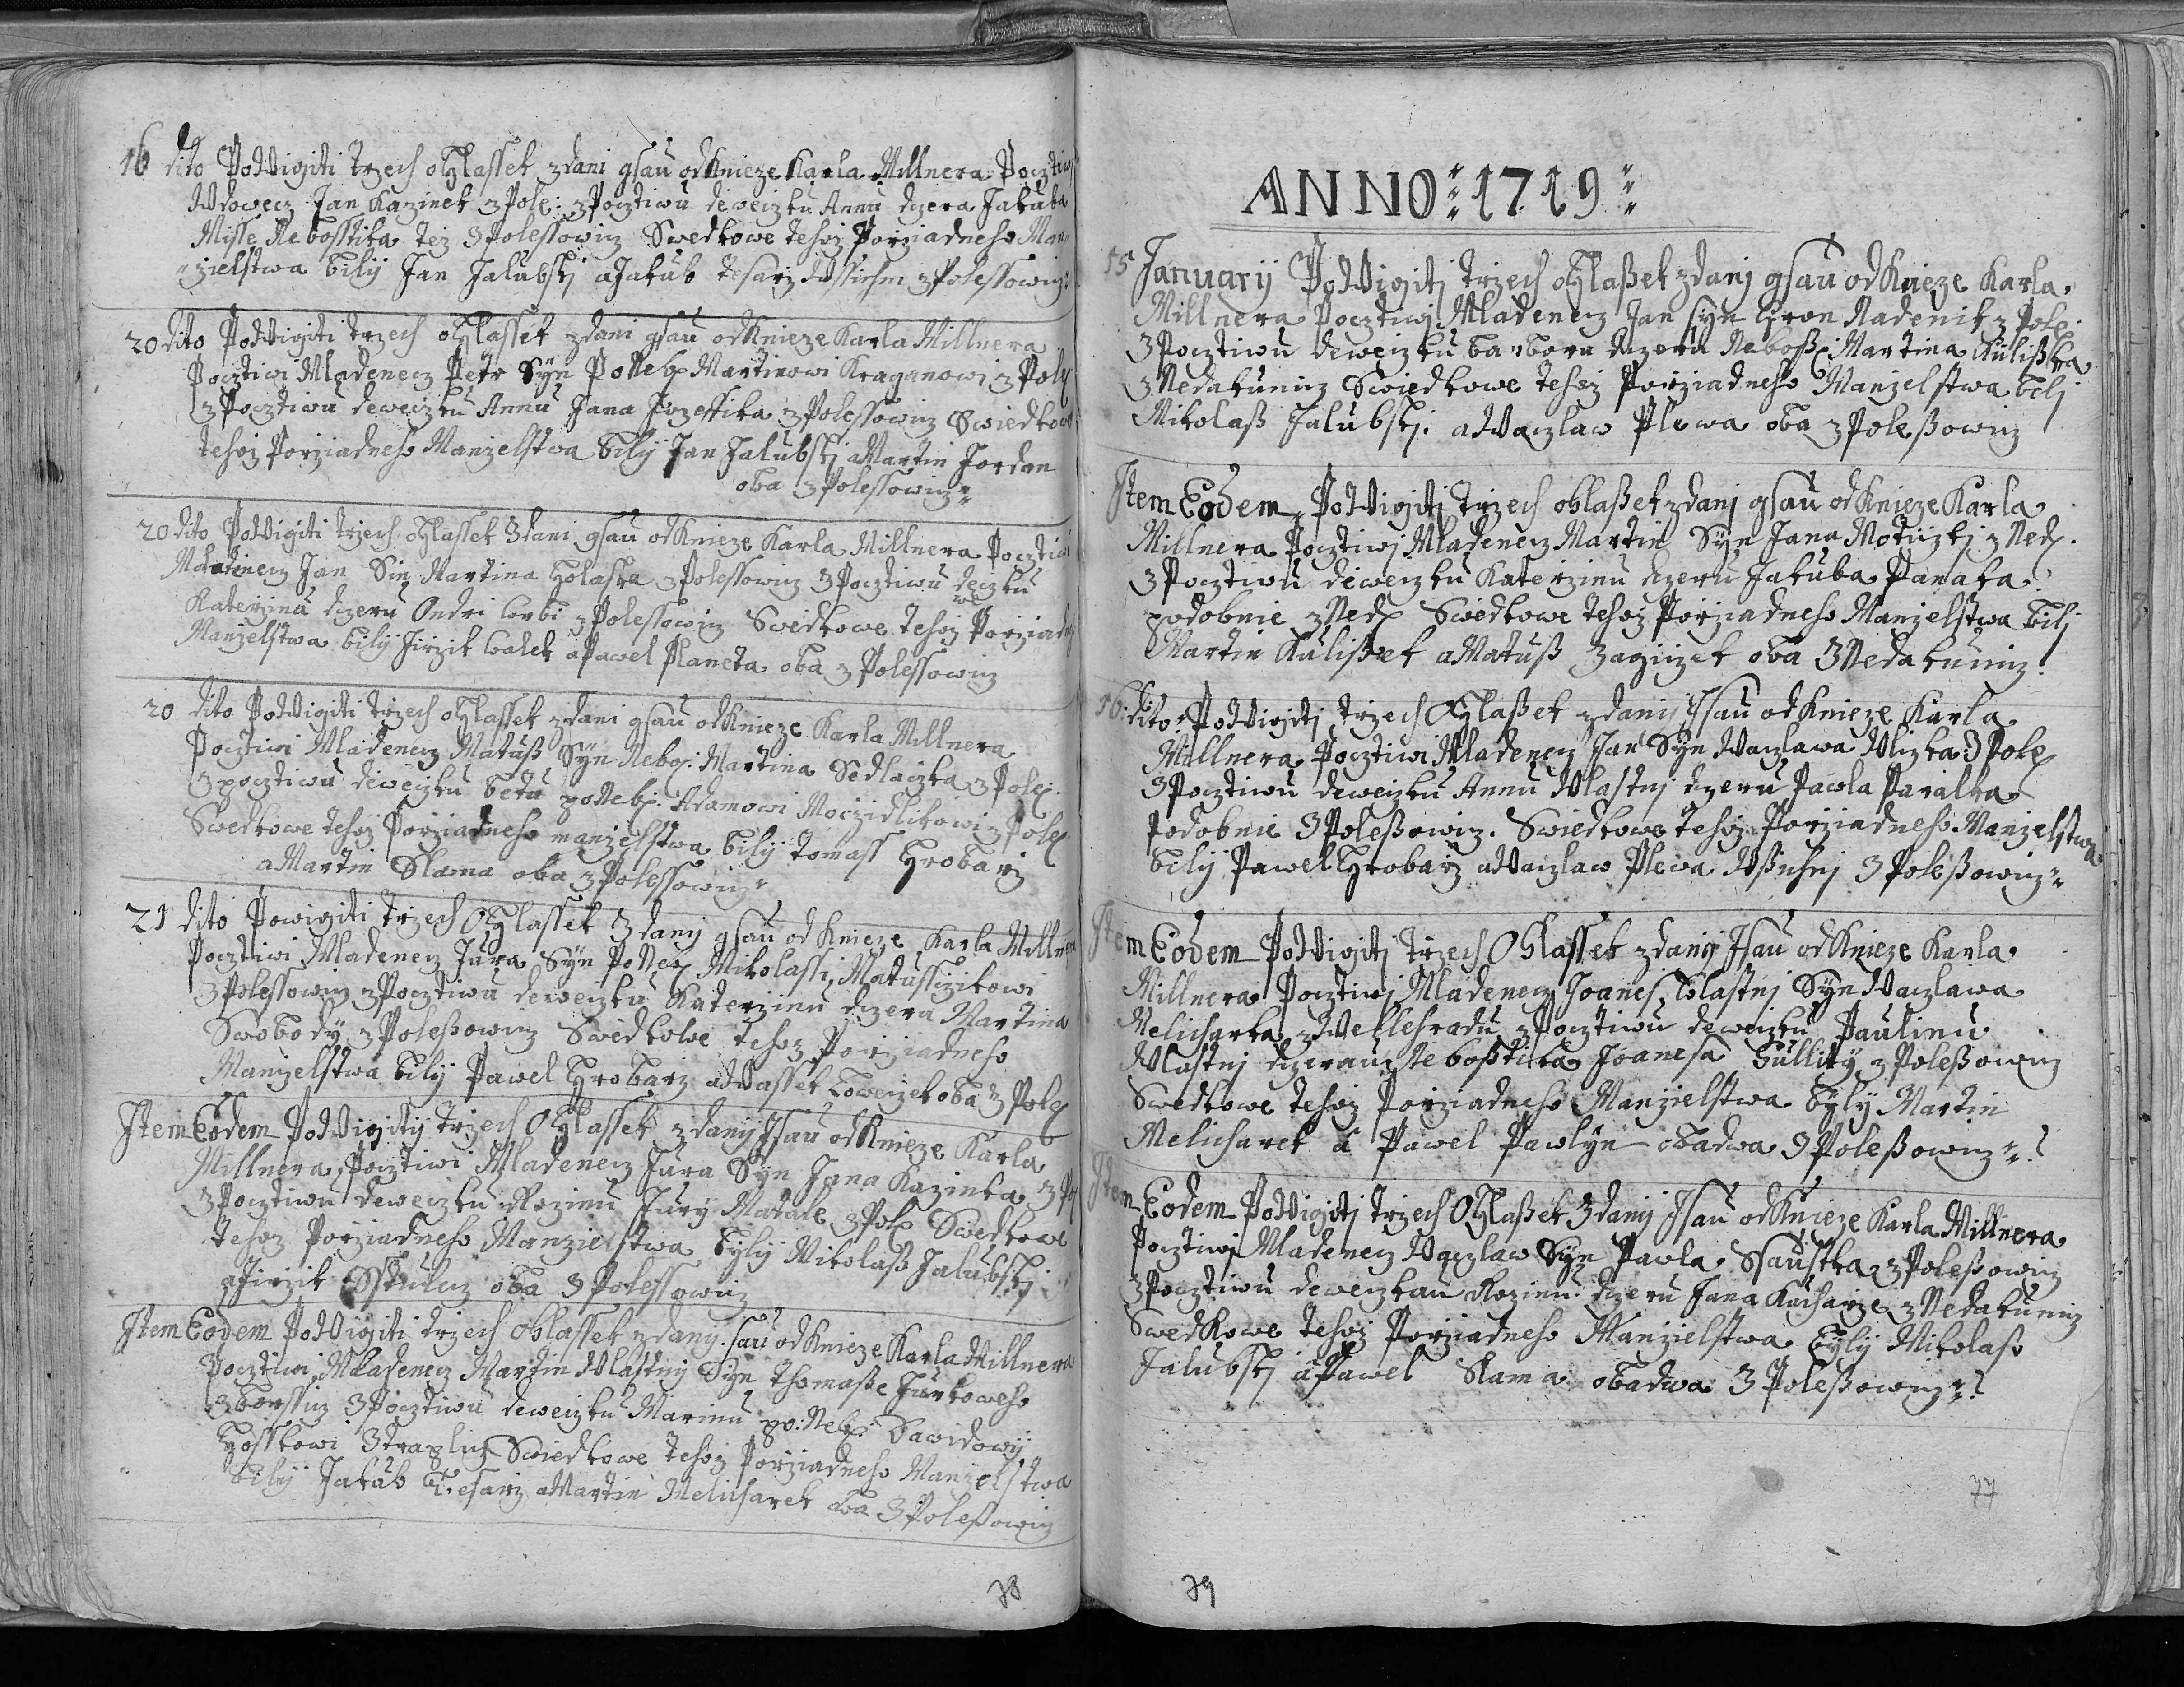 16 dito Po Wigiti trzech oHlassek zdani gsau od Knieze Karla Millnera Pocztiwj
Wdowecz Jan Kazinek z Pole: z Pocztiwu deweczku Annu dczera Jakuba
Misse Nebosstika tez z Polessowicz Swedkowe tehoz Porziadneho Man„
„zielstwa bilij Jan Jalubskj a Jakub Tesarz Wssichni z Polessowicz
20 dito Po Wigiti trzech oHlassek zdani gsau od Knieze Karla Millnera
Pocztiwi Mladenecz Petr Syn Po Neb: Martinowi Kraganowi z Pole
z Pocztiwu deweczku Annu Jana Jozeffika z Polessowicz Swiedkowe
tehoz Porziadneho Manzelstwa bilij Jan Jalubskj a Martin Jordan
oba z Polessowicz
20 dito Po Wigiti trzech oHlassek zdani gsau od Knieze Karla Millnera Pocztiwi
Mladenecz Jan Sin Martina Holaska z Polessowicz z Pocztiwu deweczku
Katerzinu dczeru Ondri z Polessowicz Swedkowe tehoz Porziadn
Manzelstwa bilij Jirzik Walek a Pawel Planeta oba z Polessowicz
20 dito Po Wigiti trzech oHlassek zdani gsau od Knieze Karla Millnera
Pocztiwi Mladenecz Matuss Syn Nebo: Martina Sedlaczka z Pole:
z pocztiwu deweczku betu po Neb: Adamowi Moczidlikowi z Pole
Swedkowe tehoz Porziadneho manzelstwa bilij Tomass Hrobarz
a Martin Slama oba z Polessowicz
21 dito Powigiti trzech OHlassek zdanj gsau od Knieze Karla Millnera
Pocztiwi Mladenecz Jura Syn Po Neb Mikolassi Matussczikowi
z Polessowicz z Pocztiwu deweczku Katerzinu dczera Martina
Swobody z Poleßowicz Swedkowe tehoz Porziadneho
Manzelstwa bilij Pawel Hrobarz a Wassek oba z Pole
Item Eodem Po Wigitij trzech OHlassek zdanij Jsau od Knieze Karla
Millnera Pocztiwi Mladenecz Jura Syn Jana Kazinka z Pol
z Pocztiwu deweczku Rozinu Jury Matule z Pole Swedkowe
tehoz Porziadneho Manzielstwa bylij Mikolass Jalubskj
a Jirzik oba z Polessowicz
Item Eodem Po Wigiti trzech Ohlassek zdanij sau od Knieze Karla Millnera
Pocztiwi Mladenecz Martin Wlastnij Syn Thomaße Jurkoweho
z Borssicz z Pocztiwu deweczku Marinu po: Neb: Dawidowij
Hosskowi z traplicz Swiedkowe tehoz Porziadneho Manzelstwa
bilij Jakub Tesarz a Martin Melicharek oba z Poleßowicz
78
ANNO: 1719:
15 Januarij Po Wigitj trzech oHlaßek zdanj gsau od Knieze Karla
Millnera Pocztiwj Mladenecz Jan syn Hron Nadenik z Pole:
z Pocztiwu deweczku barboru dczeru Neboß: Martina Kulißka
z Nedakunicz Swiedkowe tehoz Porziadneho Manzelstwa bilj
Mikolaß Jalubskj. a Waczlaw Plewa oba z Poleßowicz
Item Eodem Po Wigitj trzech ohlaßek zdanj gsau od Knieze Karla
Millnera Pocztiwj Mladenecz Martin Syn Jana Moticzkj z Ned.
z Pocztiwu deweczku Katerzinu dczeru Jakuba Panaka
podobnie z Ned Swedkowe tehoz Porziadneho Manzelstwa bilj
Martin Kulißek a Matuß Zagiczek oba z Nedakunicz
16. dito Po Wigitj trzech OHlaßek zdanij Jsau od Knieze Karla
Millnera Pocztiwi Mladenecz Jan Syn Waczlawa Wlczka z Pole
z Pocztiwu deweczku Annu Wlastnj dczeru Pawla Paralka
Podobnie z Poleßowicz. Swiedkowe tehoz Porziadneho Manzelstwa
bilij Pawel Hrobarz a Waczlaw Plewa Wßichnj z Poleßowicz
Item Eodem Po Wigitj trzech OHlassek zdanij Jsau od Knieze Karla
Millnera Pocztiwj Mladenecz Joanes, Wlastnj Syn Waczlawa
Melicharka z Wellehradu z Pocztiwu deweczku Paulinu
Wlastnj dczerau Neboßtika Joanesa Gullity z Poleßowicz
Swedkowe tehoz Porziadneho Manzielstwa byly Martin
Melicharek a Pawel Pawlyn obadwa z Poleßowicz
Item Eodem Po Wigitj trzech OHlaßek zdanij Jsau od Knieze Karla Millnera
Pocztiwj Mladenecz Waczlaw Syn Pawla Ssaustka z Poleßowicz
z Pocztiwu deweczkau Rozinu dczeru Jana Kucharze z Nedakunicz
Swedkowe tehoz Porziadneho Manzielstwa bylij Mikolaß
Jalubskj a Pawel Slama obadwa z Poleßowicz
77
79